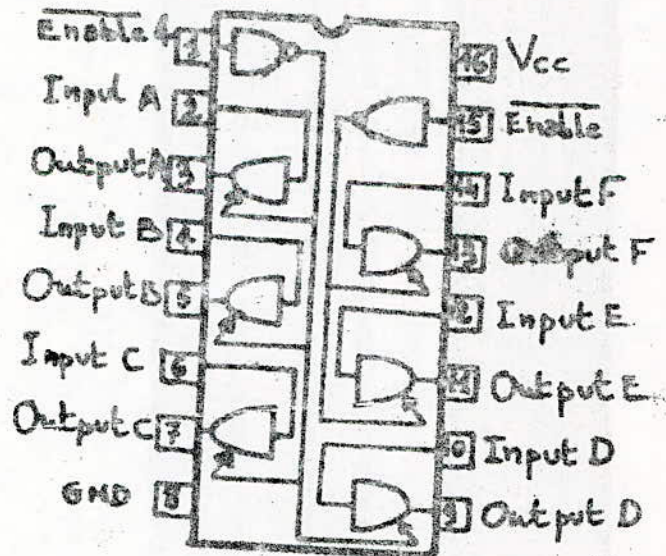 Enable4 1
Input A 2
Output A 3
Input B 4
Output B 5
Input C 6
Output C 7
GND 8
16 Vcc
15 Enable
14 Input F
13 Output F
12 Input E
11 Output E
10 Input D
9 Output D